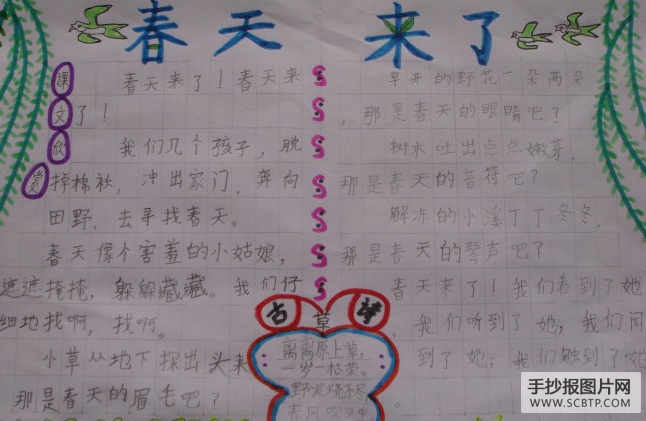 春天来了
课文欣赏
春天来了！春天来
了！
我们几个孩子，脱
掉棉袄，冲出家门，奔向
田野，去寻找春天。
春天像个害羞的小姑娘，
遮遮掩掩，躲躲藏藏。我们仔
细地找啊，找啊。
小草从地下探出头来
那是春天的眉毛吧？
早开的野花一朵两朵
，那是春天的眼睛吧？
树木吐出点点嫩芽，
那是春天的音符吧？
解冻的小溪丁丁冬冬，
那是春天的琴声吧？
春天来了！我们看到了她
，我们听到了她，我们闻
到了她，我们触到了她
。
古诗
草
离离原上草，
一岁一枯荣。
野火烧不尽
春风吹又生
手抄报图片网
WWW.SCBTP.COM